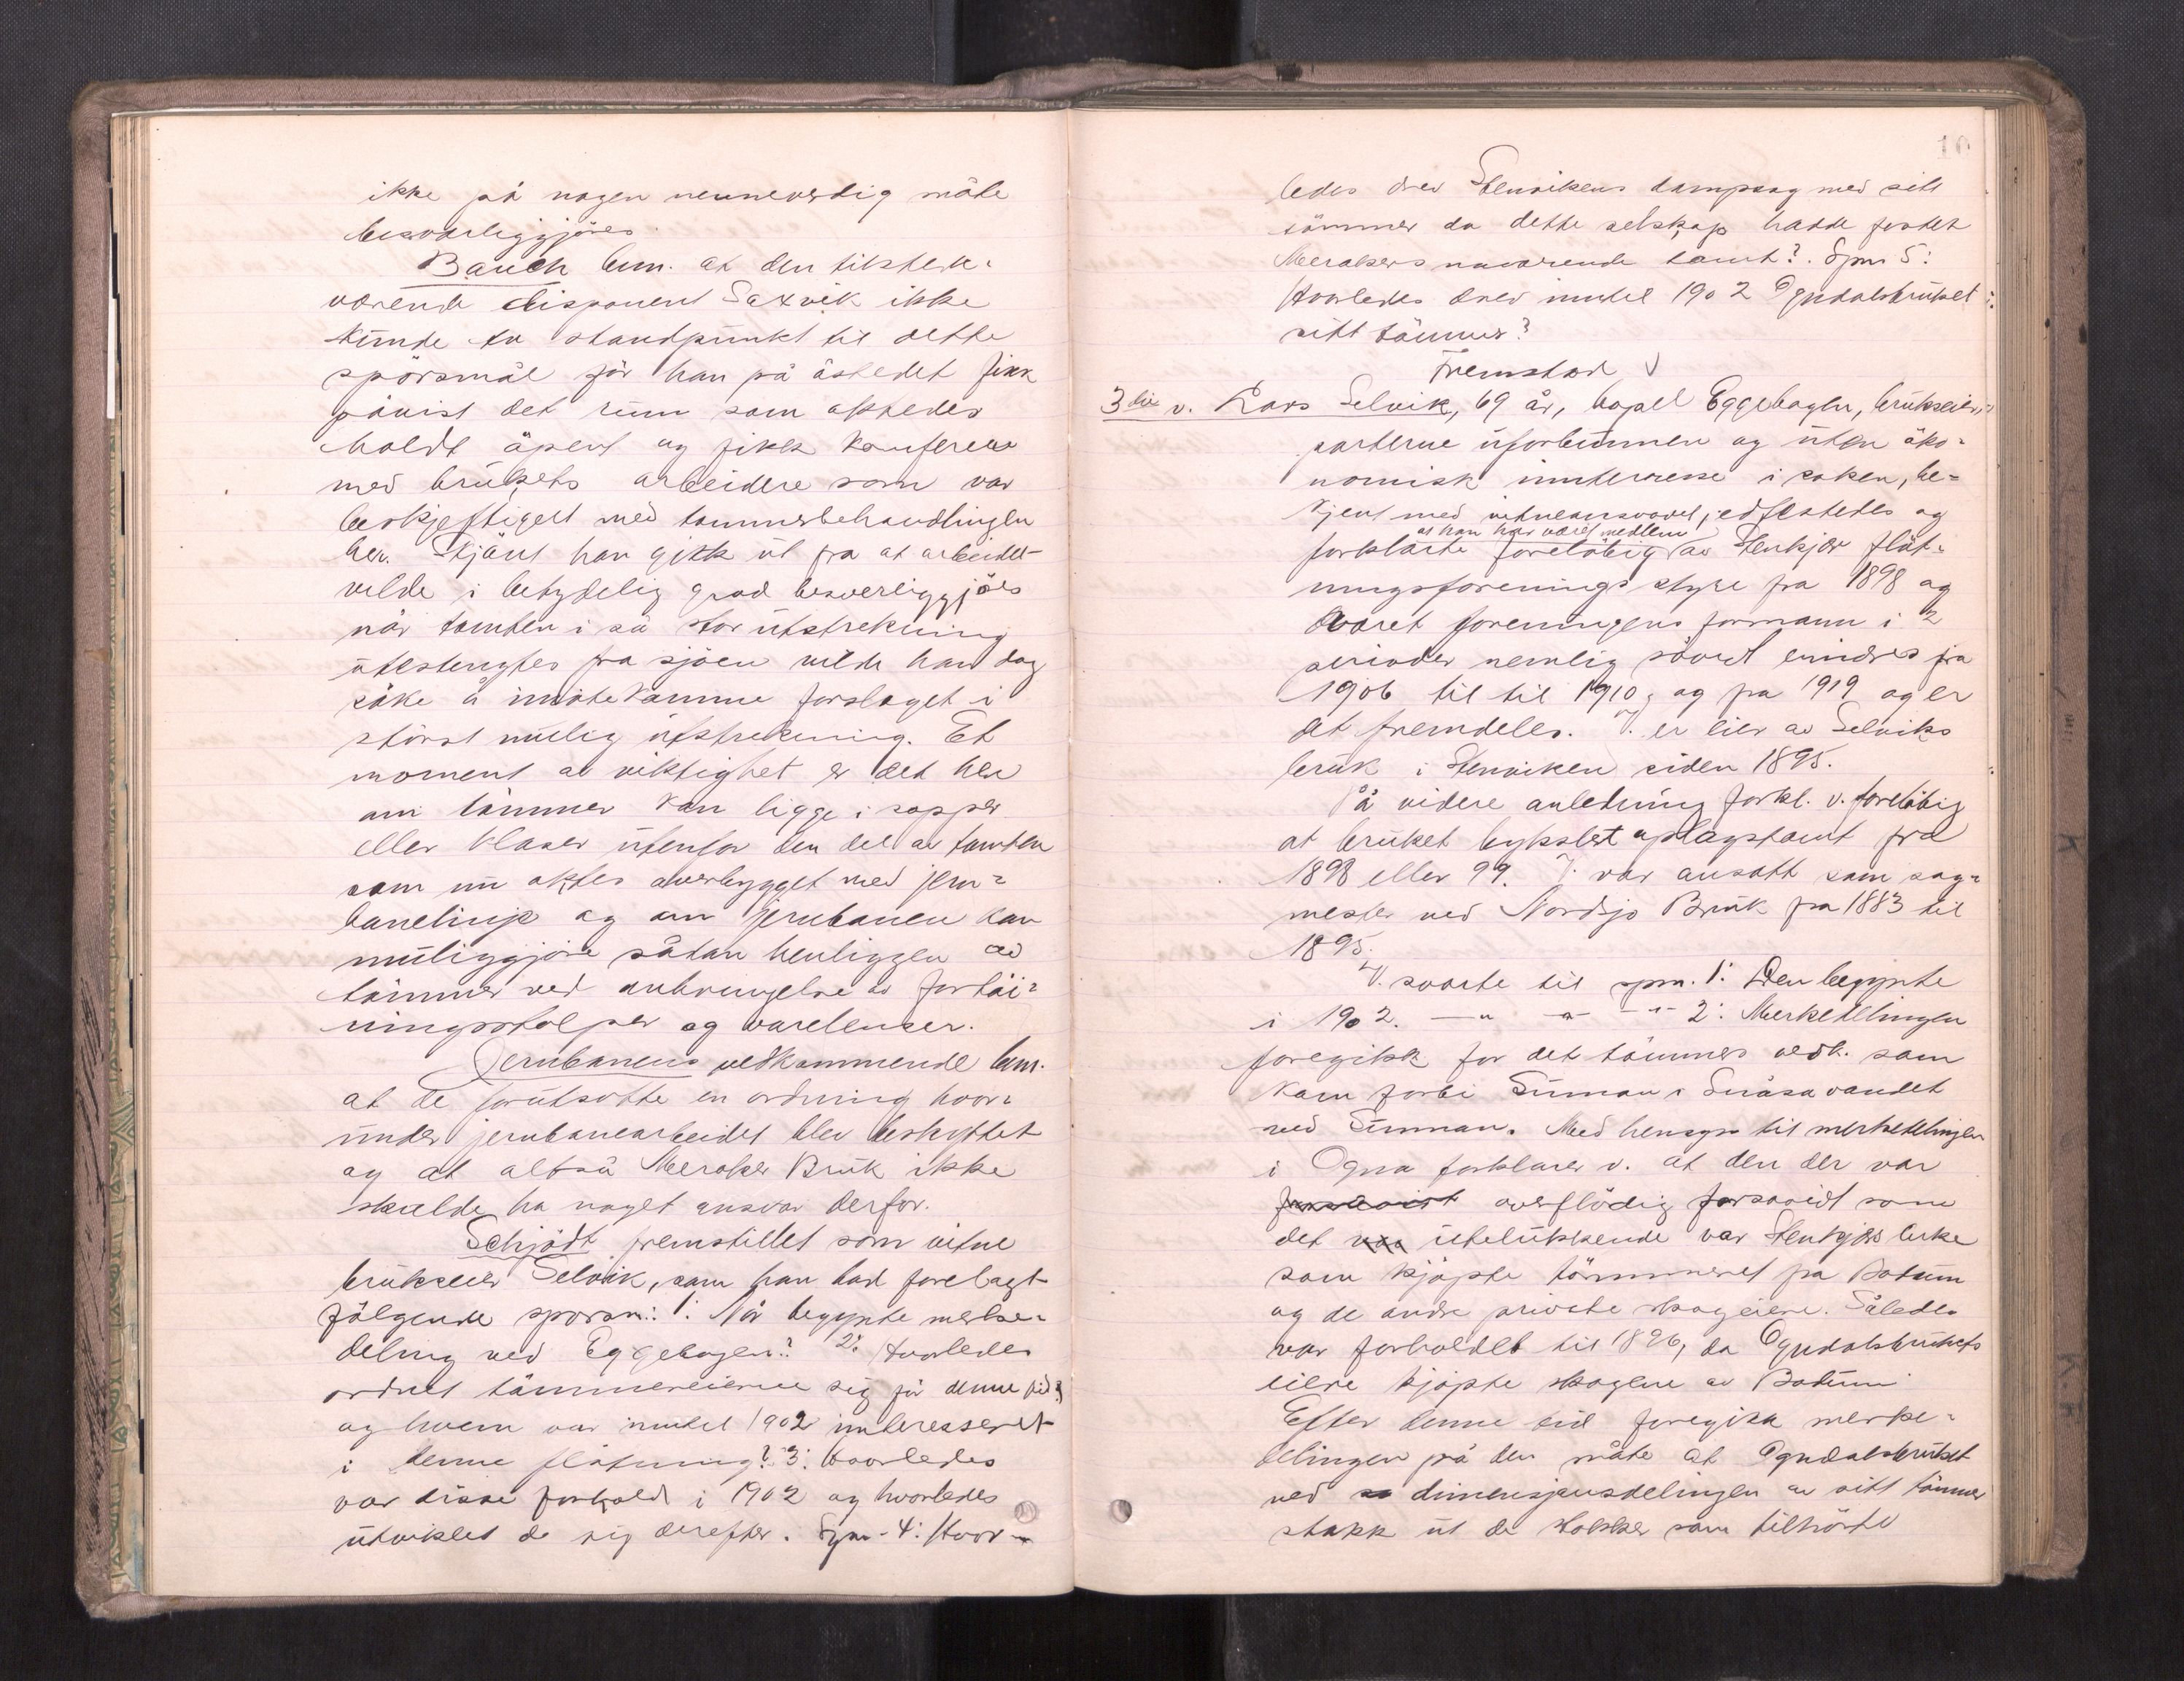 ikke på nogen nevneverdig måte
besværliggjöres.
Bauch bem. at den tilstede-
værende disponent Saxvik ikke
kunde ta standpunkt til dette
spörsmål för han på åstedet fikk
påvist det rum som aktedes
holdt åpent og fikk konferere
med brukets arbeidere som var
beskjeftiget med tömmerbehandlingen
her. Skjönt han gikk ut fra at arbeidet
vilde i betydelig grad besverliggjöres
når tomten i så stor utstrekning
utestengtes fra sjöen vilde han dog
söke å imötekomme forslaget i
störst mulig utstrekning. Et
moment av viktighet er det her
om tömmer kan ligge i sopper
eller klaser utenfor den del av tomten
som nu aktes overbygget med jern-
banelinje og om jernbanen kan
muliggjöre sådan henliggen av
tömmer ved anbringelse av fortöi-
ningsstolper og varelenser.
Jernbanens vedkommende bem.
at de forutsatte en ordning hvor-
under jernbanearbeidet blev beskyttet
og at altså Meraker Bruk ikke
skulde ha noget ansvar derfor.
Schjödt fremstillet som vitne
brukseier Selvik, som han bad forelagt
fölgende spörsm.: 1: Når begynte merke-
deling ved Eggebogen? 2: Hvorledes
ordnet tömmereierne sig för denne tid
og hvem var inntil 1902 interesseret
i denne flötning? 3: Hvorledes
var disse forhold i 1902 og hvorledes
utviklet de sig derefter. Spm. 4: Hvor-
10
ledes drev Stenvikens dampsag med sitt
tömmer da dette selskap hadde festet
Merakers nuværende tomt? Spm 5:
Hvorledes drev inntil 1902 Ogndalsbruket
sitt tömmer?
Fremstod
3die v. Lars Selvik, 69 år, bopel Eggebogen, brukseier,
parterne uforbunnen og uten öko-
nomisk innteresse i saken, be-
kjent med vitneansvaret, edfestedes og
at han har været medlem
forklarte foreløbig av Stenkjær flöt-
ningsforenings styre fra 1898 og
været foreningens formann i 2
perioder nemlig såvidt erindres fra
1906 til til 1910, og fra 1919 og er
det fremdeles. V. er eier av Selviks
bruk i Stenviken siden 1895.
På videre anledning forkl. v. foreløbig
at bruket bykslet oplagstomt fra
1898 eller 99. V. var ansatt som sag-
mester ved Nordsjo Bruk fra 1883 til
1895.
V. svarte til spm. 1: Den begynte
i 1902. — " — " — " 2: Merkedelingen
foregikk for det tömmers vedk. som
kom forbi Sunnan i Snåsavandet
ved Sunnan. Med hensyn til merkedelingen
i Ogna forklarer v. at den der var
overflödig forsåvidt som
det utelukkende var Stenkjær bruk
som kjöpte tömmeret fra Bodum
og de andre private skogeiere. Således
var forholdet til 1896, da Ogndalsbrukets
eiere kjöpte skogene av Bodum
Efter denne tid foregikk merke-
delingen på den måte at Ogndalsbruket
ved dimensjonsdelingen av sitt tömmer
stakk ut de stokker som tilhörte